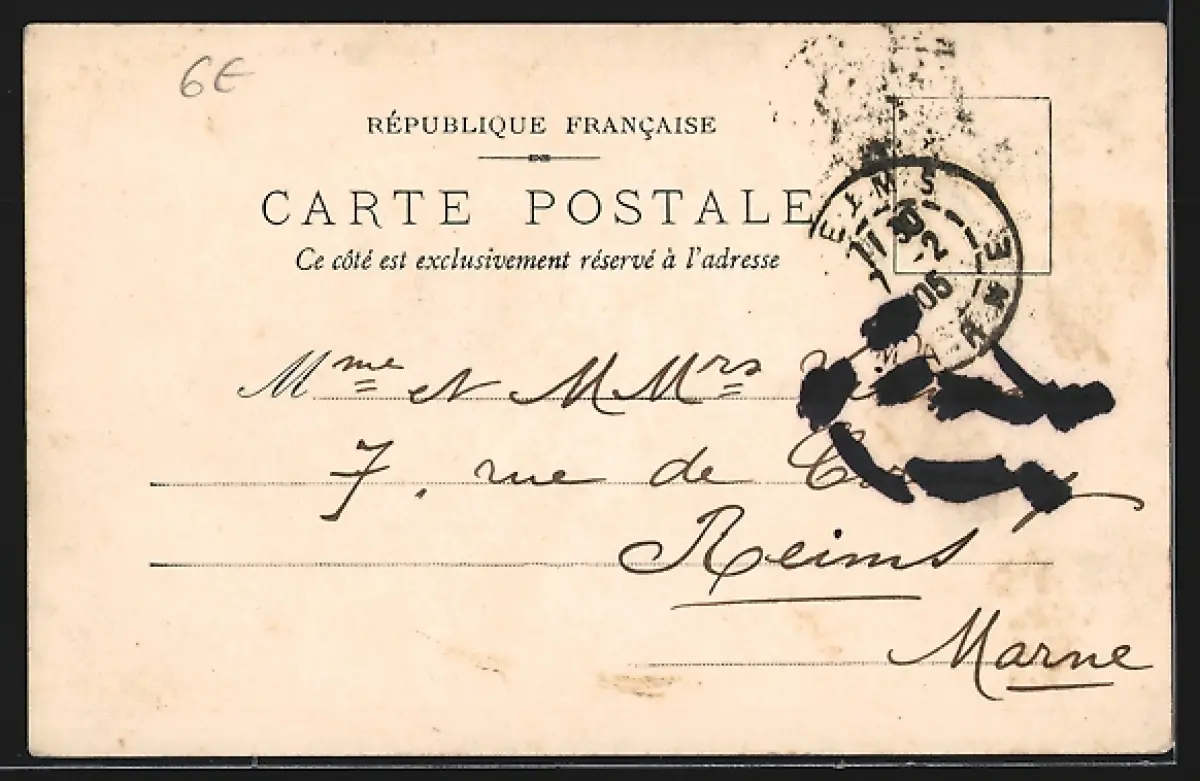 6€
RÉPUBLIQUE FRANÇAISE
CARTE POSTALE
Ce côté est exclusivement réservé à l'adresse
EIMS
30
-2
05
NE
Mme et MMrs
7, rue de
Reims
Marne